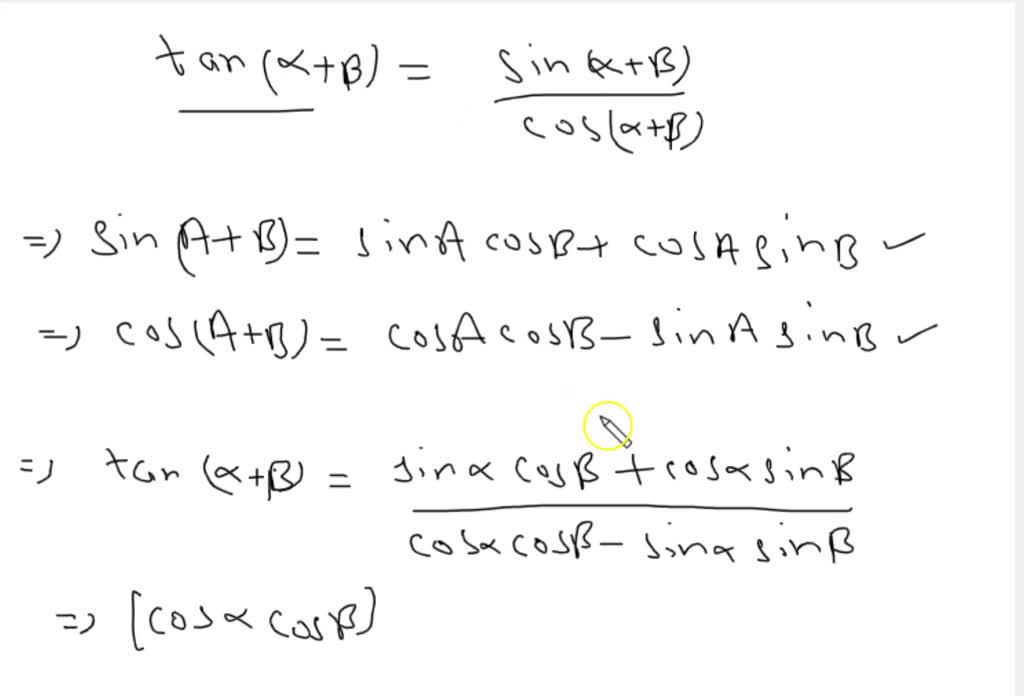 tan(α+β) = sin(α+β) / cos(α+β)
=> sin(A+B) = sinA cosB + cosA sinB ✓
=> cos(A+B) = cosA cosB - sinA sinB ✓
=> tan(α+β) = sinα cosβ + cosα sinβ / cosα cosβ - sinα sinβ
=> [cosα cosβ]